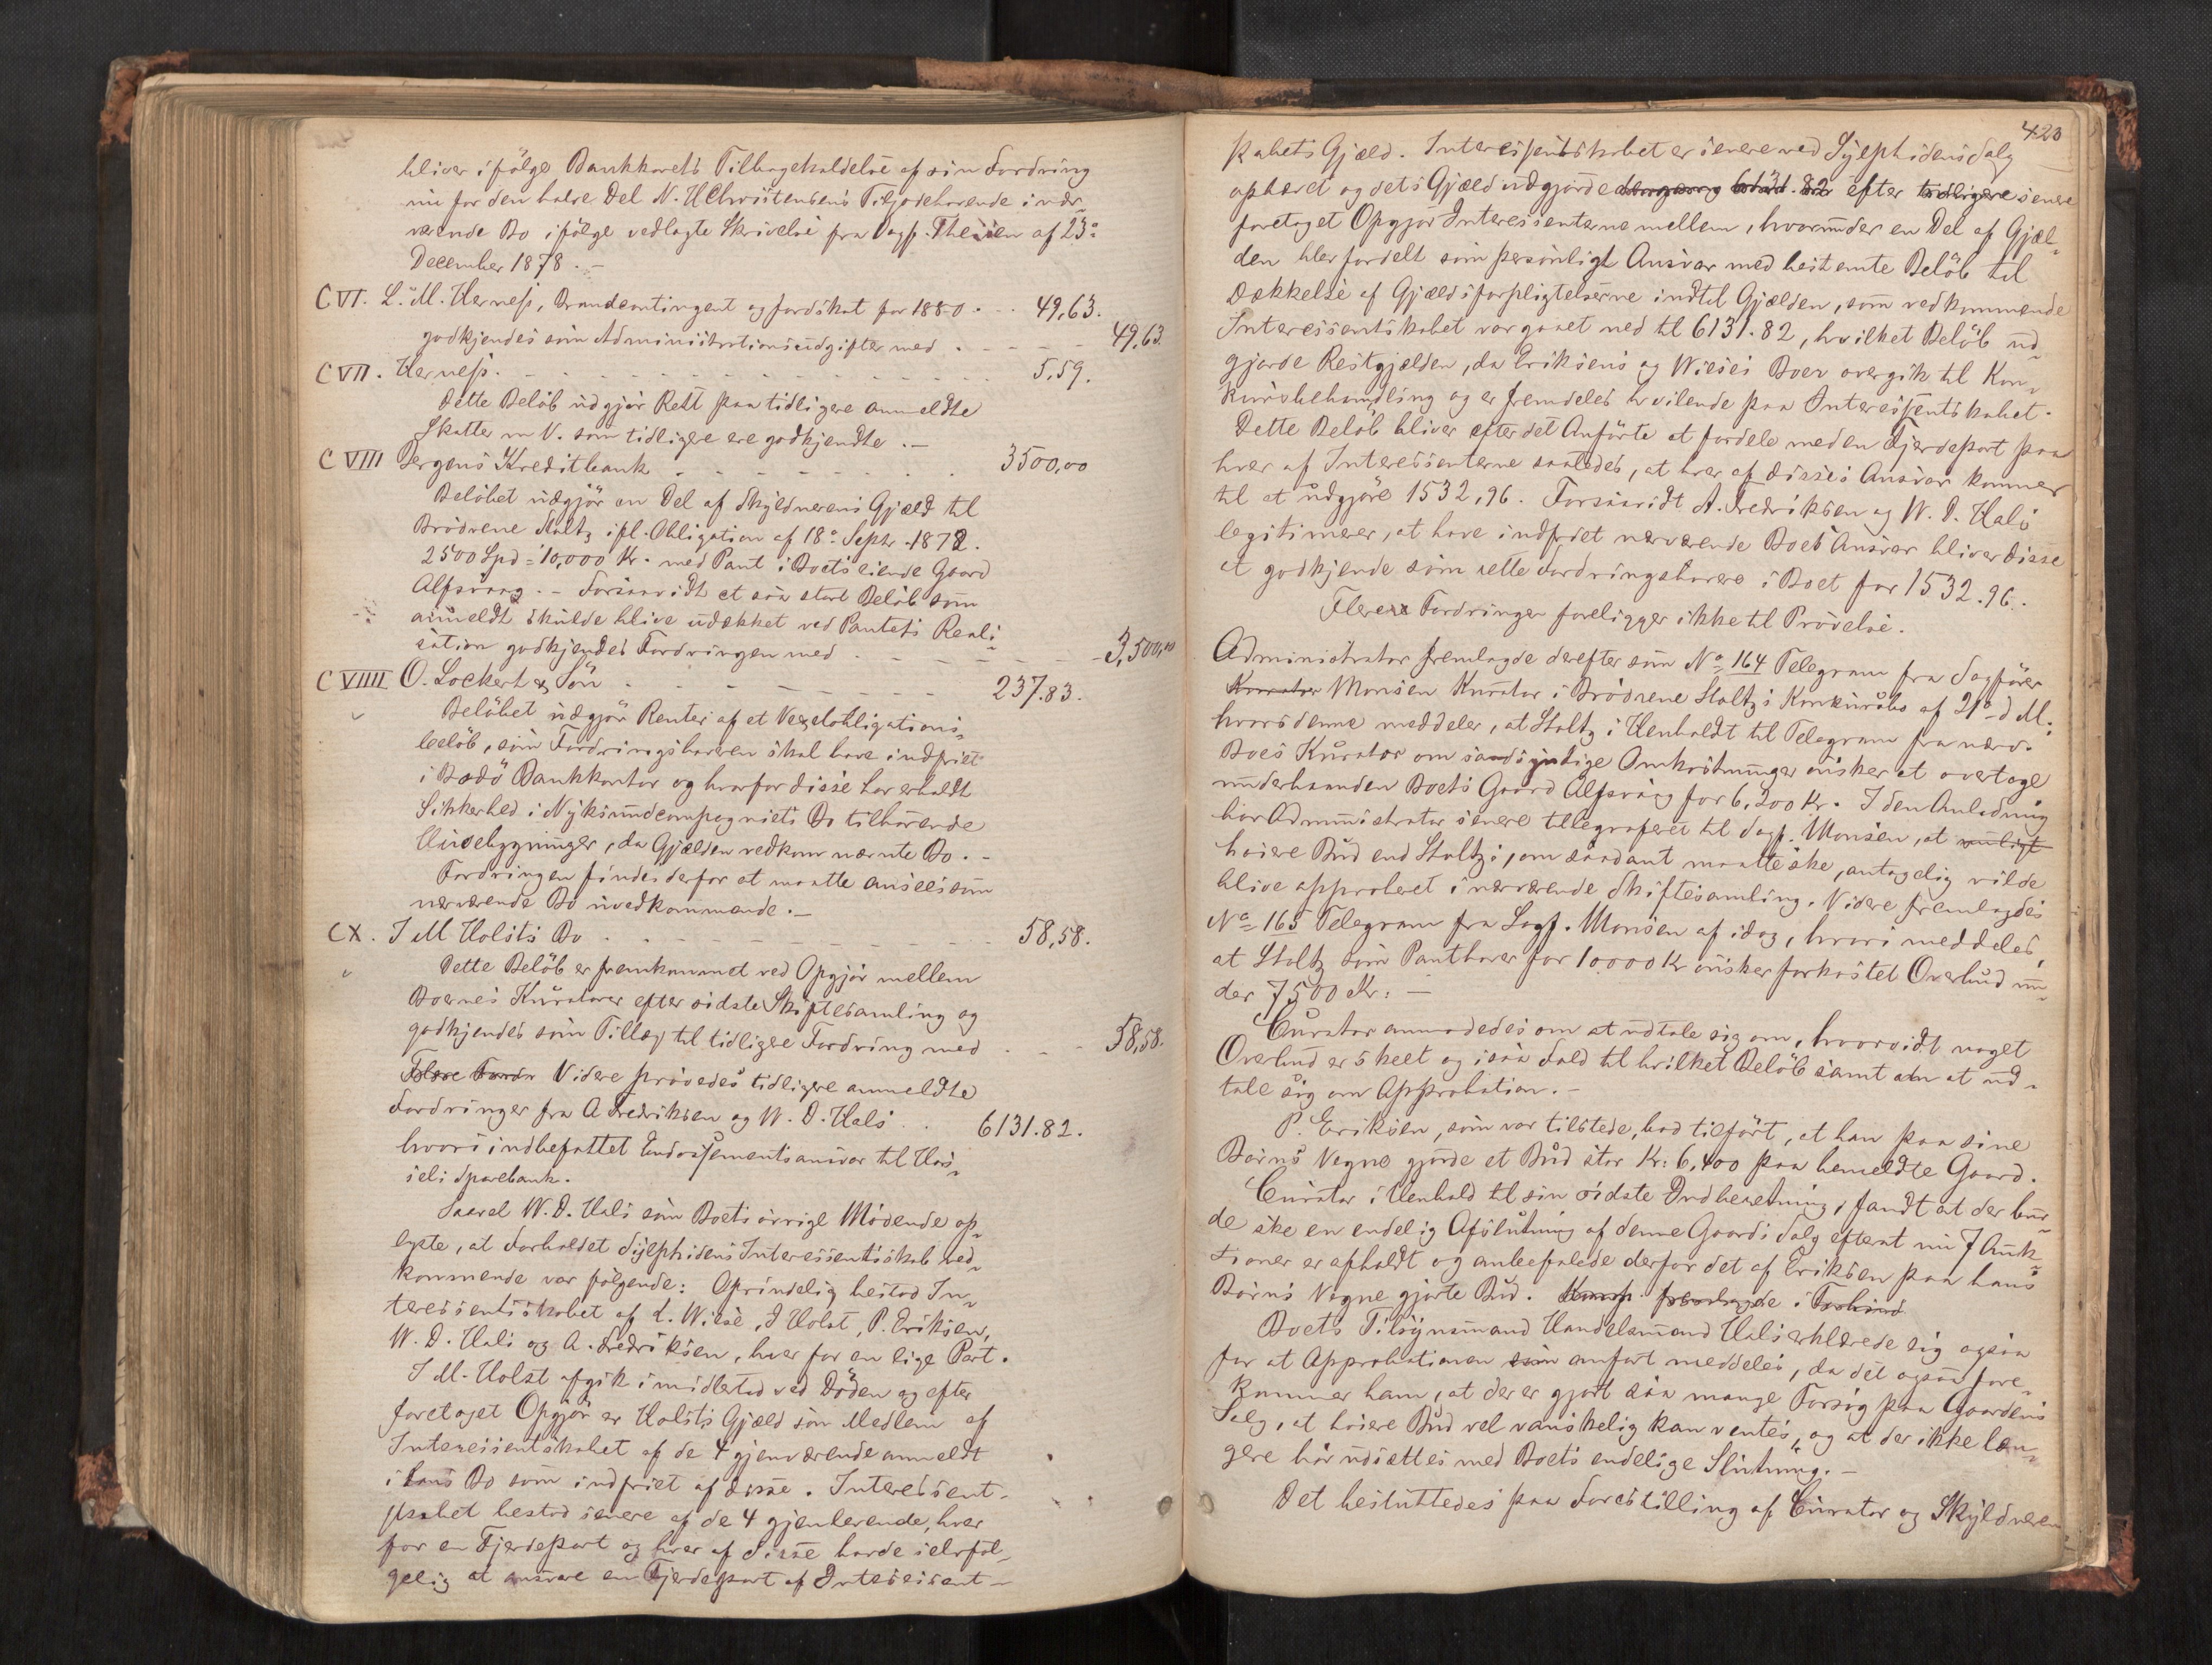 bliver ifölge Bankkorets Tilbageholdelse af sin Fordring
nu for den halve Del N. H Christensens Tilgodehavende i nær-
værende Bo ifölge vedlagte Skrivelse fra Sagf. Thesen af 23de
December 1878. —
CVI. L. M. Herness, Brandcontingent og Jordskat for 1880 . . . 49,63.
godkjendes som Administrationsudgifter med . — — — 49,63.
CVII. Herness. . . . . . . . . 5,59.
Dette Belöb udgjör Rest paa tidligere anmeldte
Skatter m V. som tidligere ere godkjendte . —
CVIII Bergens Kreditbank . . . . . . . . 3500,00
Belöbet udgjör en Del af Skyldnerens Gjæld til
Brödrene Stoltz ifl. Obligation af 18de Septr. 1872.
2500 Spd = 10,000 Kr. med Pant i Boets eiende Gaard
Alfsvaag. — Forsaavidt et saa stort Belöb som
anmeldt skulde blive udækket ved Pantets Reali-
sation godkjendes Fordringen med . — — — 3,500,00
CVIIII O. Lockert & Sön . . . . . . 237.83.
Belöbet udgjör Renter af et Vexelobligations-
beløb, som Fordringshaveren skal have indfriet
i Bodö Bankkontor og hvorfor disse har erholdt
Sikkerhed i Nyksundcompagniets Bo tilhørende
Huusebygninger, da Gjælden vedkom nævnte Bo. —
Fordringen findes derfor at maatte ansees som
nærværende Bo uvedkommende. —
CX. I M Holsts Bo . . . . . . . . 58,58.
Dette Belöb er fremkommet ved Opgjör mellem
Boernes Kuratorer efter sidste Skiftesamling og
godkjendes som Tillæg til tidligere Fordring med . — — 58,58.
Flere Fordr Videre prövedes tidligere anmeldte
Fordringer fra A Fredriksen og W. D. Hals . . 6131.82.
hvori indbefattet Endossementsansvar til Has-
sels Sparebank.
Saavel W. D. Hals som Boets övrige Mödende op-
lyste, at Forholdet Sylphidens Interessentskab ved-
kommende var følgende: Oprindelig bestod In-
teressentskabet af L. Wiese, I Holst, P. Eriksen,
W. D. Hals og A. Fredriksen, hver for en lige Part.
I M. Holst afgik imidlertid ved Döden og efter
foretaget Opgjör er Holsts Gjæld som Medlem af
Interessentskabet af de 4 gjenværende anmeldt
i hans Bo som indfriet af disse. Interessent-
skabet bestod senere af de 4 gjenlevende, hver
for en Fjerdepart og hver af disse havde selvføl-
gelig at ansvare en Fjerdepart af Interessent-
423
skabets Gjæld. Interessentskabet er senere ved Sylphidens Salg
ophævet og dets Gjæld udgjorde efter tidligere senere
foretaget Opgjør Interessenterne mellem, hvorunder en Del af Gjæl-
den blev fordelt som personligt Ansvar med bestemte Belöb til
Dækkelse af Gjældsforpligtelserne indtil Gjælden, som vedkommende
Interessentskabet var gaaet ned til 6131.82, hvilket Belöb ud-
gjorde Restgjælden, da Eriksens og Wieses Boer overgik til Kon-
kursbehandling og er fremdeles hvilende paa Interessentskabet.
Dette Belöb bliver efter det Anförte at fordele med en Fjerdepart paa
hver af Interessenterne saaledes, at hver af disses Ansvar kommer
til at udgjöre 1532,96. Forsaavidt A. Fredriksen og W. D. Hals
legitimerer, at have indfriet nærværende Boes Ansvar bliver disse
at godkjende som rette Fordringshavere i Boet for 1532.96.
Flere Fordringer foreligger ikke til Prövelse.
Administrator fremlagde derefter som No 164 Telegram fra Sagförer
Kurator Monsen Kurator i Brödrene Stoltz's Konkursbo af 21de d M.
hvori denne meddeler, at Stoltz i Henholdt til Telegram fra nærv.
Boes Kurator om sandsynlige Omkostninger önsker at overtage
underhaanden Boets Gaard Alfsvaag for 6,200 Kr. I den Anledning
har Administrator senere telegraferet til Sagf. Monsen, at muligt
höiere Bud end Stoltz's, om saadant maatte ske, antagelig vilde
blive approberet i nærværende Skiftesamling. Videre fremlagdes
No 165 Telegram fra Sagf. Monsen af idag, hvori meddeles,
at Stoltz som Panthaver for 10000 Kr önsker forkastet Overbud un-
der 7,500 Kr. —
Curator anmodedes om at udtale sig om, hvorvidt noget
Overbud er skeet og i saa Fald til hvilket Belöb samt at ud-
tale sig om Approbation. —
P. Eriksen, som var tilstede, bad tilfört, at han paa sine
Börns Vegne gjorde et Bud stor Kr: 6,400 paa bemeldte Gaard.
Curator i Henhold til sin sidste Indberetning, fandt at der bur-
de ske en endelig Afslutning af denne Gaards Salg efterat nu 7 Auk-
tioner er afholdt og anbefalede derfor det af Eriksen paa hans
Börns Vegne gjorte Bud.
Boets Tilsynsmand Handelsmand Hals erklærede sig ogsaa
for at Approbationen som anført meddeles, da det ogsaa fore-
kommer ham, at der er gjort saa mange Forsög paa Gaardens
Salg, at höiere Bud vel vanskelig kan ventes, og at der ikke læn-
gere bör udsættes med Boets endelige Slutning. —
Det besluttedes paa Forestilling af Curator og Skyldneren